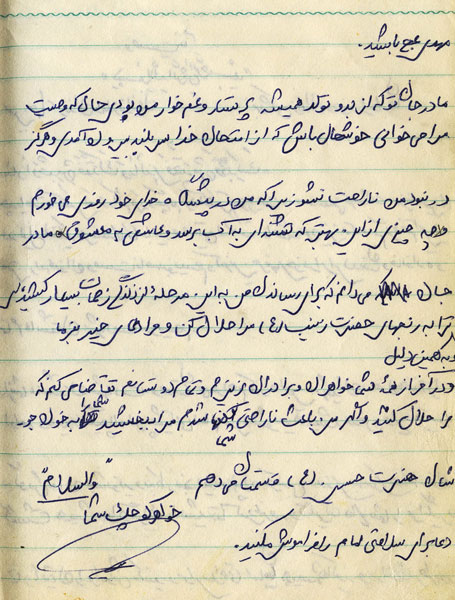 مهدی عج باشید.
مادر جان تو که از بدو تولد همیشه پرستار و غم خوار من بودی حال که وصیت
مرا می خوانی خوشحال باش که از امتحان خدا سربلند بیرون آمدی و هرگز
در نبود من ناراحت نشو زیرا که من در پیشگاه خدای خود روزی می خورم
و چه چیزی از این بهتر که تشنه ای به آب برسد و عاشقی به معشوق. مادر
جان می دانم که برای رساندن من به این مرحله از زندگی زحمات بسیار کشیده ای
ترا به رنجهای حضرت زینب (ع) مرا حلال کن و مرا دعای خیر بفرما
و به همین دلیل
و در آخر از همهٔ شما خواهران و برادران عزیزم و تمام دوستانم تقاضا می کنم که
مرا حلال کنید و اگر من باعث ناراحتی شما شدم مرا ببخشید شما به خون جو-
شان حضرت حسین (ع) قسمتان می دهم
"والسلام"
خواهر کوچک شما
دعا برای سلامتی امام را فراموش مکنید.